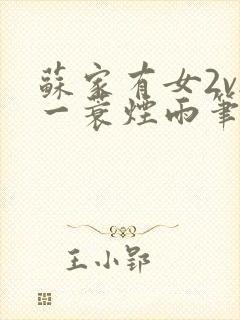 蘇家有女2v
一蓑煙雨筆
王小郢